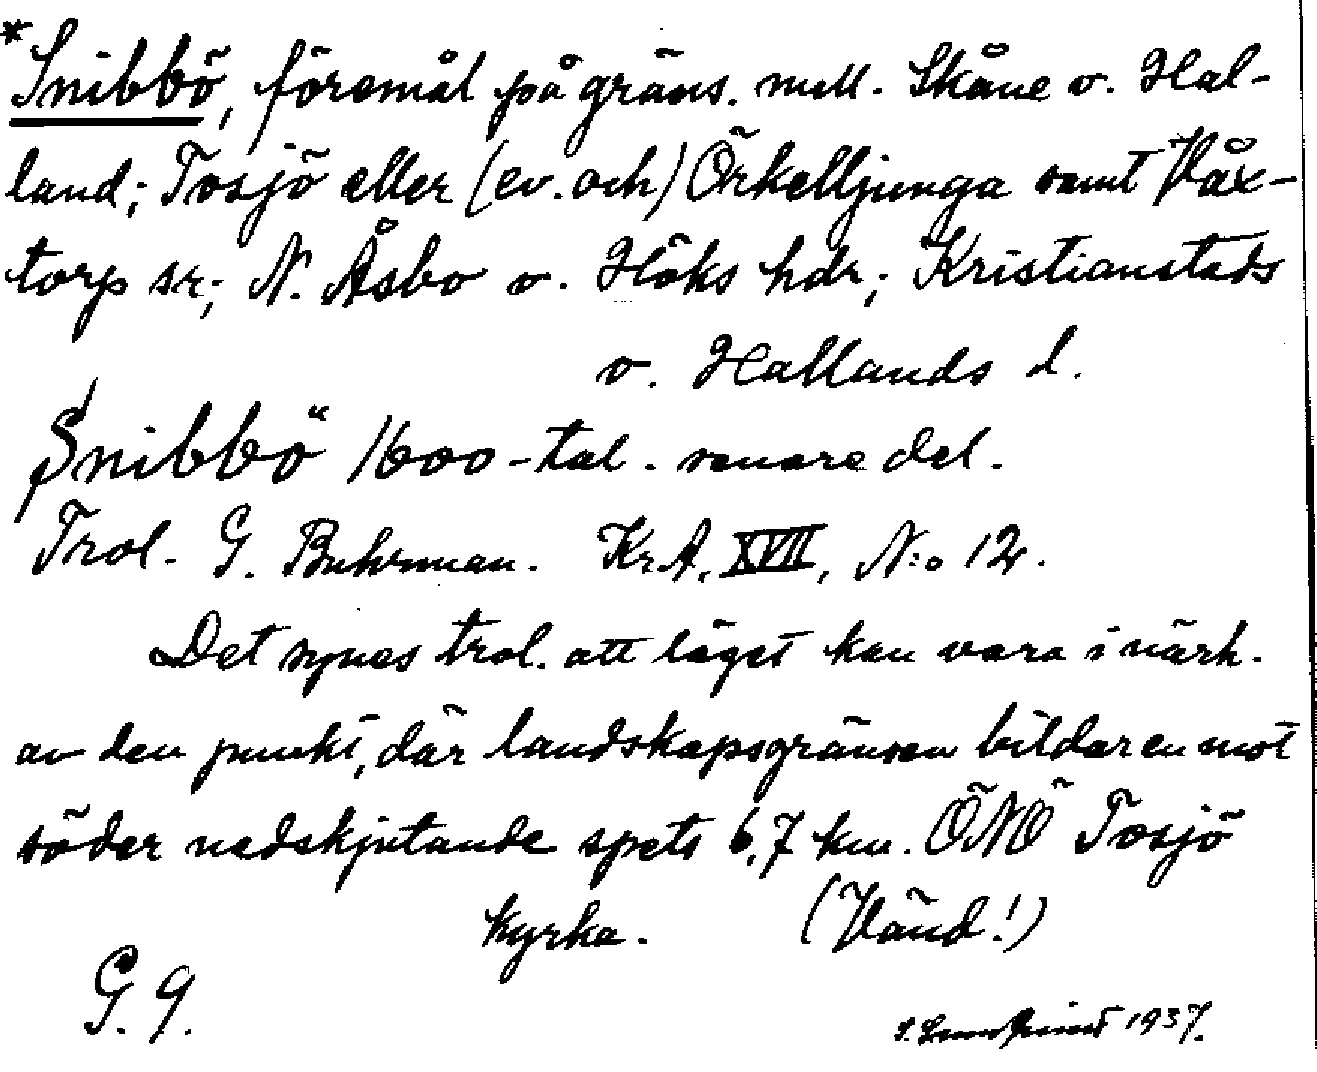 *Snibbö, föremål på gräns. mell. Skåne o. Hal-
land; Tosjö eller (ev. och) Örkelljunga samt Våx-
torp sr; N. Åsbo o. Höks hdr; Kristianstads
o. Hallands l.
Snibbö 1600-tal. senare del.
Trol. G. Buhrman. KrA, XVII, N:o 12.
Det synes trol. att läget kan vara i närh.
av den punkt, där landskapsgränsen bildar en mot
söder nedskjutande spets 6,7 km. ÖNÖ Tosjö
kyrka. (Vänd!)
G. 9.
1937.